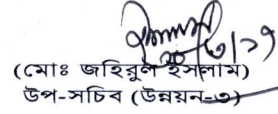 ২০/৩/১৭
(মোঃ জহিরুল ইসলাম)
উপ-সচিব (উন্নয়ন-৩)